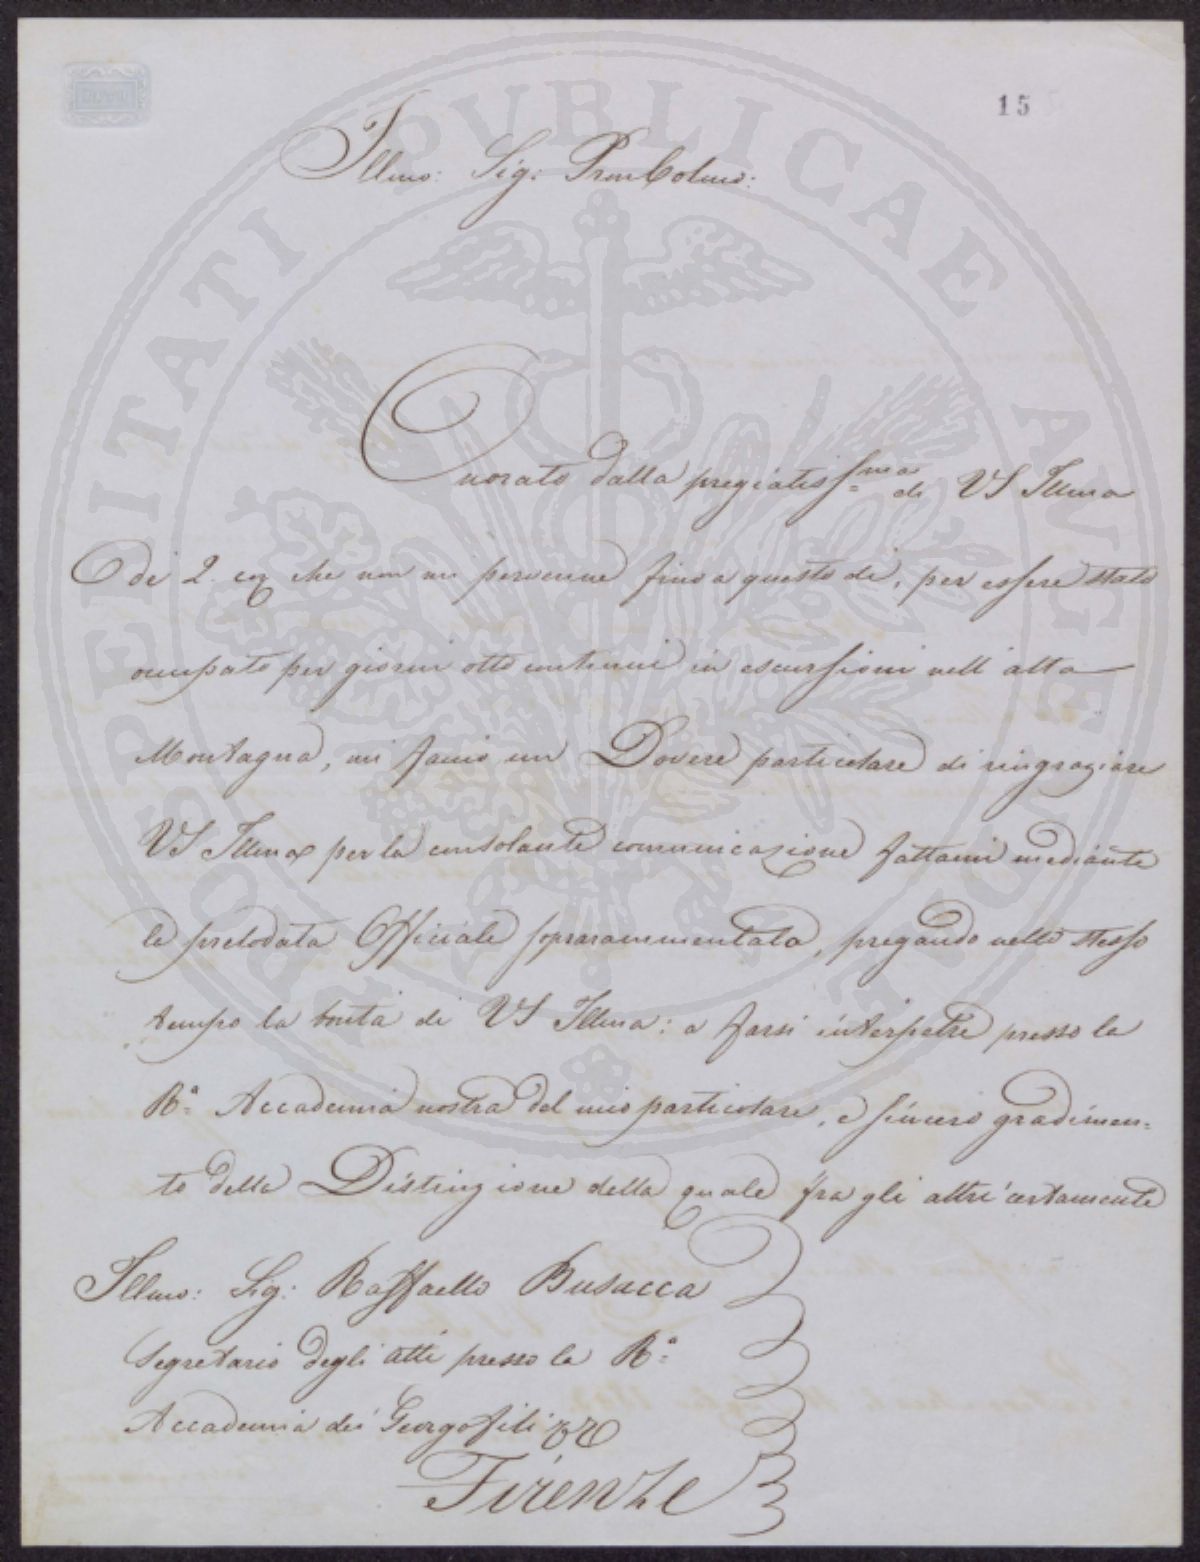 15
Illmo: Sig: Pron Colmo:
Onorato dalla pregiatissma di VS Illma
de 2. cog che non mi pervenne fino a questo dì, per essere stato
occupato per giorni otto continui in escursioni nell' alta
Montagna, mi faccio un Dovere particolare di ringraziare
VS Illma per la consolante comunicazione fattami mediante
la prelodata Officiale soprarammentata, pregando nello stesso
tempo la bontà di VS Illma: a farsi interpetre presso la
Ra: Accademia nostra del mio particolare, e sincero gradimen=
to della Distinzione della quale fra gli altri certamente
Illmo: Sig: Raffaello Busacca
Segretario degli atti presso la Ra:
Accademia dei Georgofili
Firenze
PROSPERITATI PUBLICAE AUGENDAE